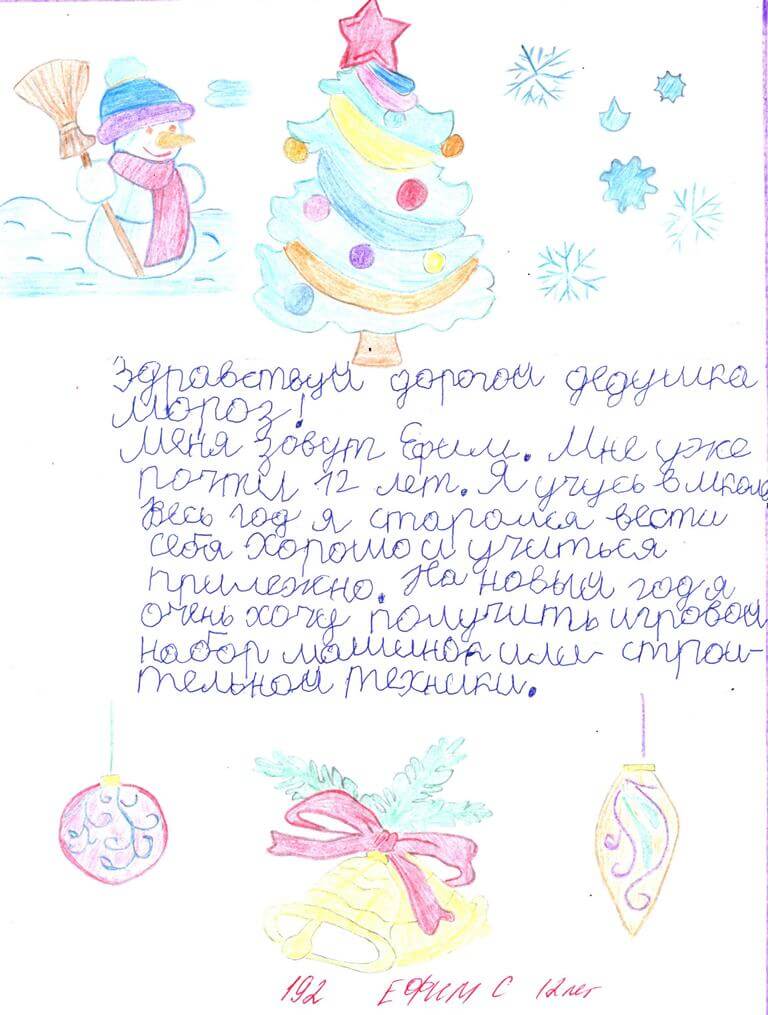 Здравствуй дорогой дедушка
Мороз!
Меня зовут Ефим. Мне уже
почти 12 лет. Я учусь в школе
Весь год я старался вести
себя хорошо и учиться
прилежно. На новый год я
очень хочу получить игровой
набор машинок или строи-
тельной техники.
192 Ефим С 12 лет